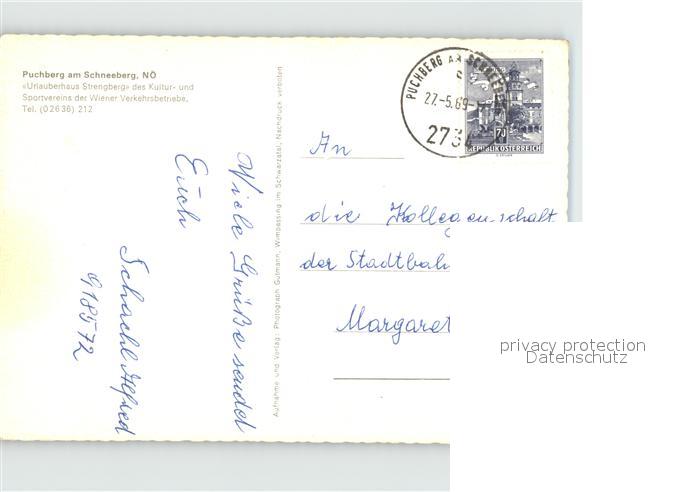 Puchberg am Schneeberg, NÖ
«Urlauberhaus Strengberg» des Kultur- und
Sportvereins der Wiener Verkehrsbetriebe,
Tel. (02636) 212
Viele Grüße sendet
Euch
Schachl Alfred
918572
Aufnahme und Verlag: Photograph Gutmann, Wimpassing im Schwarzatal, Nachdruck verboten
PUCHBERG AM SCHNEEBERG
27.-5.69-
2734
70
REPUBLIK ÖSTERREICH
An
die Kollegenschaft
der Stadtbah
Margaret
privacy protection
Datenschutz